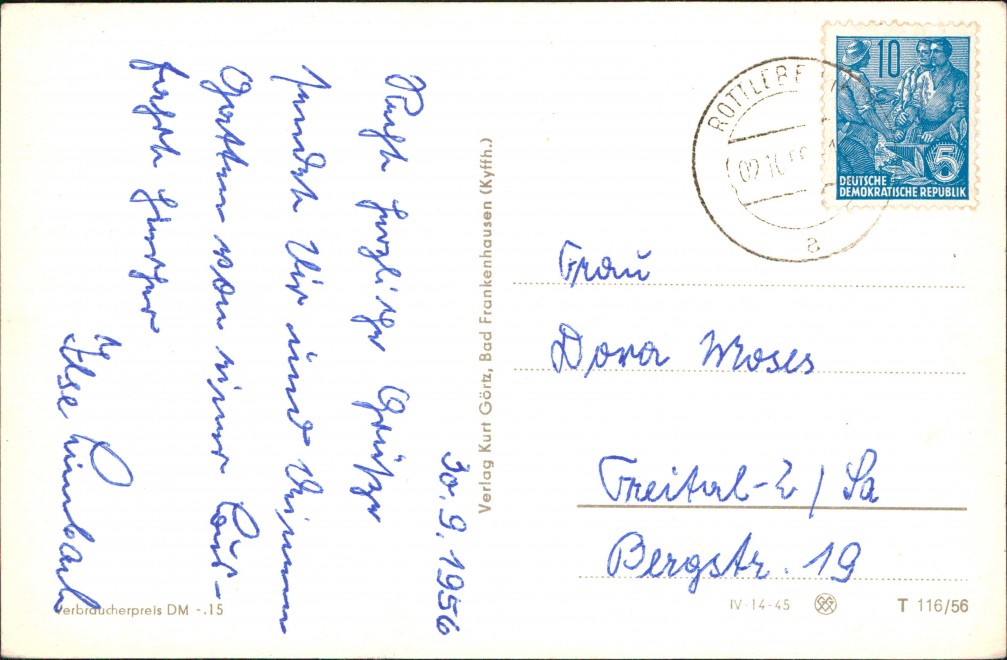 30.9.1956
Recht herzliche Grüße
sendet Dir und Deinem
Gatten von einer
fahrt hierher
Ilse
Verbraucherpreis DM -.15
Verlag Kurt Görtz, Bad Frankenhausen (Kyffh.)
ROTTLEBE
a
10
5
DEUTSCHE
DEMOKRATISCHE REPUBLIK
Frau
Dora Moses
Freital-Z/Sa
Bergstr. 19
IV-14-45
T 116/56